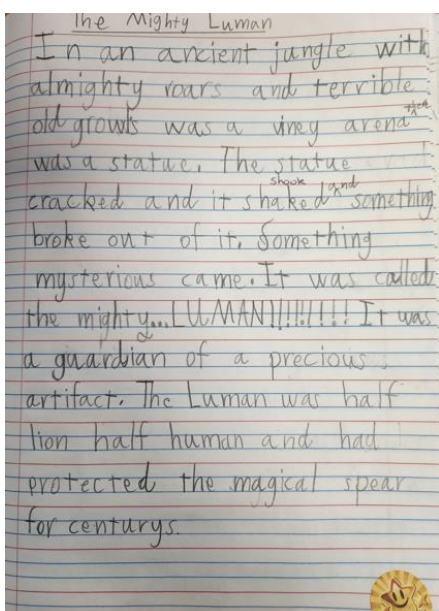 The Mighty Luman
In an ancient jungle with
almighty roars and terrible
old growls was a viney arena there
was a statue. The statue
cracked and it shaked shook and something
broke out of it. Something
mysterious came. It was called
the mighty...LUMAN!!!!!!!! It was
a guardian of a precious
artifact. The Luman was half
lion half human and had
protected the magical spear
for centurys.